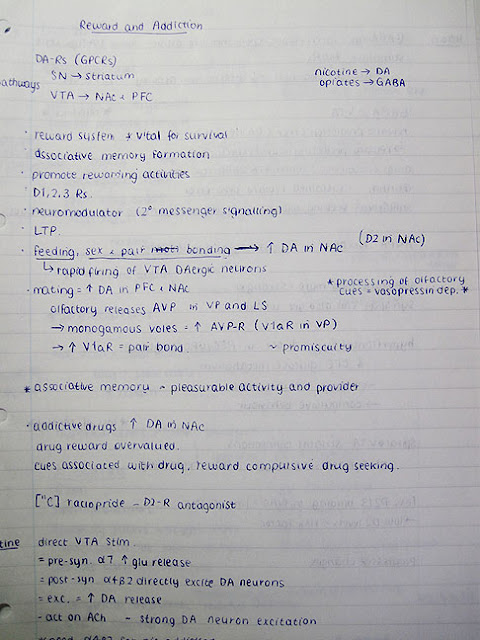 Reward and Addiction
DA-Rs (GPCRs)
pathways SN → striatum
VTA → NAc & PFC
nicotine → DA
opiates → GABA
· reward system * vital for survival
· associative memory formation
· promote rewarding activities
· D1,2,3 Rs.
· neuromodulator (2° messenger signalling)
· LTP.
· feeding, sex & pair bonding → ↑ DA in NAc (D2 in NAc)
↳ rapid firing of VTA DAergic neurons
· mating = ↑ DA in PFC & NAc
* processing of olfactory
cues = vasopressin dep. *
olfactory releases AVP in VP and LS
→ monogamous voles = ↑ AVP-R (V1aR in VP)
→ ↑ V1aR = pair bond ~ promiscuity
* associative memory ~ pleasurable activity and provider
· addictive drugs ↑ DA in NAc
drug reward overvalued.
cues associated with drug, reward compulsive drug seeking.
["C] raclopride - D2-R antagonist
tine direct VTA stim.
= pre-syn. α7 ↑ glu release
= post-syn α4β2 directly excite DA neurons
= exc. = ↑ DA release
- act on ACh ~ strong DA neuron excitation